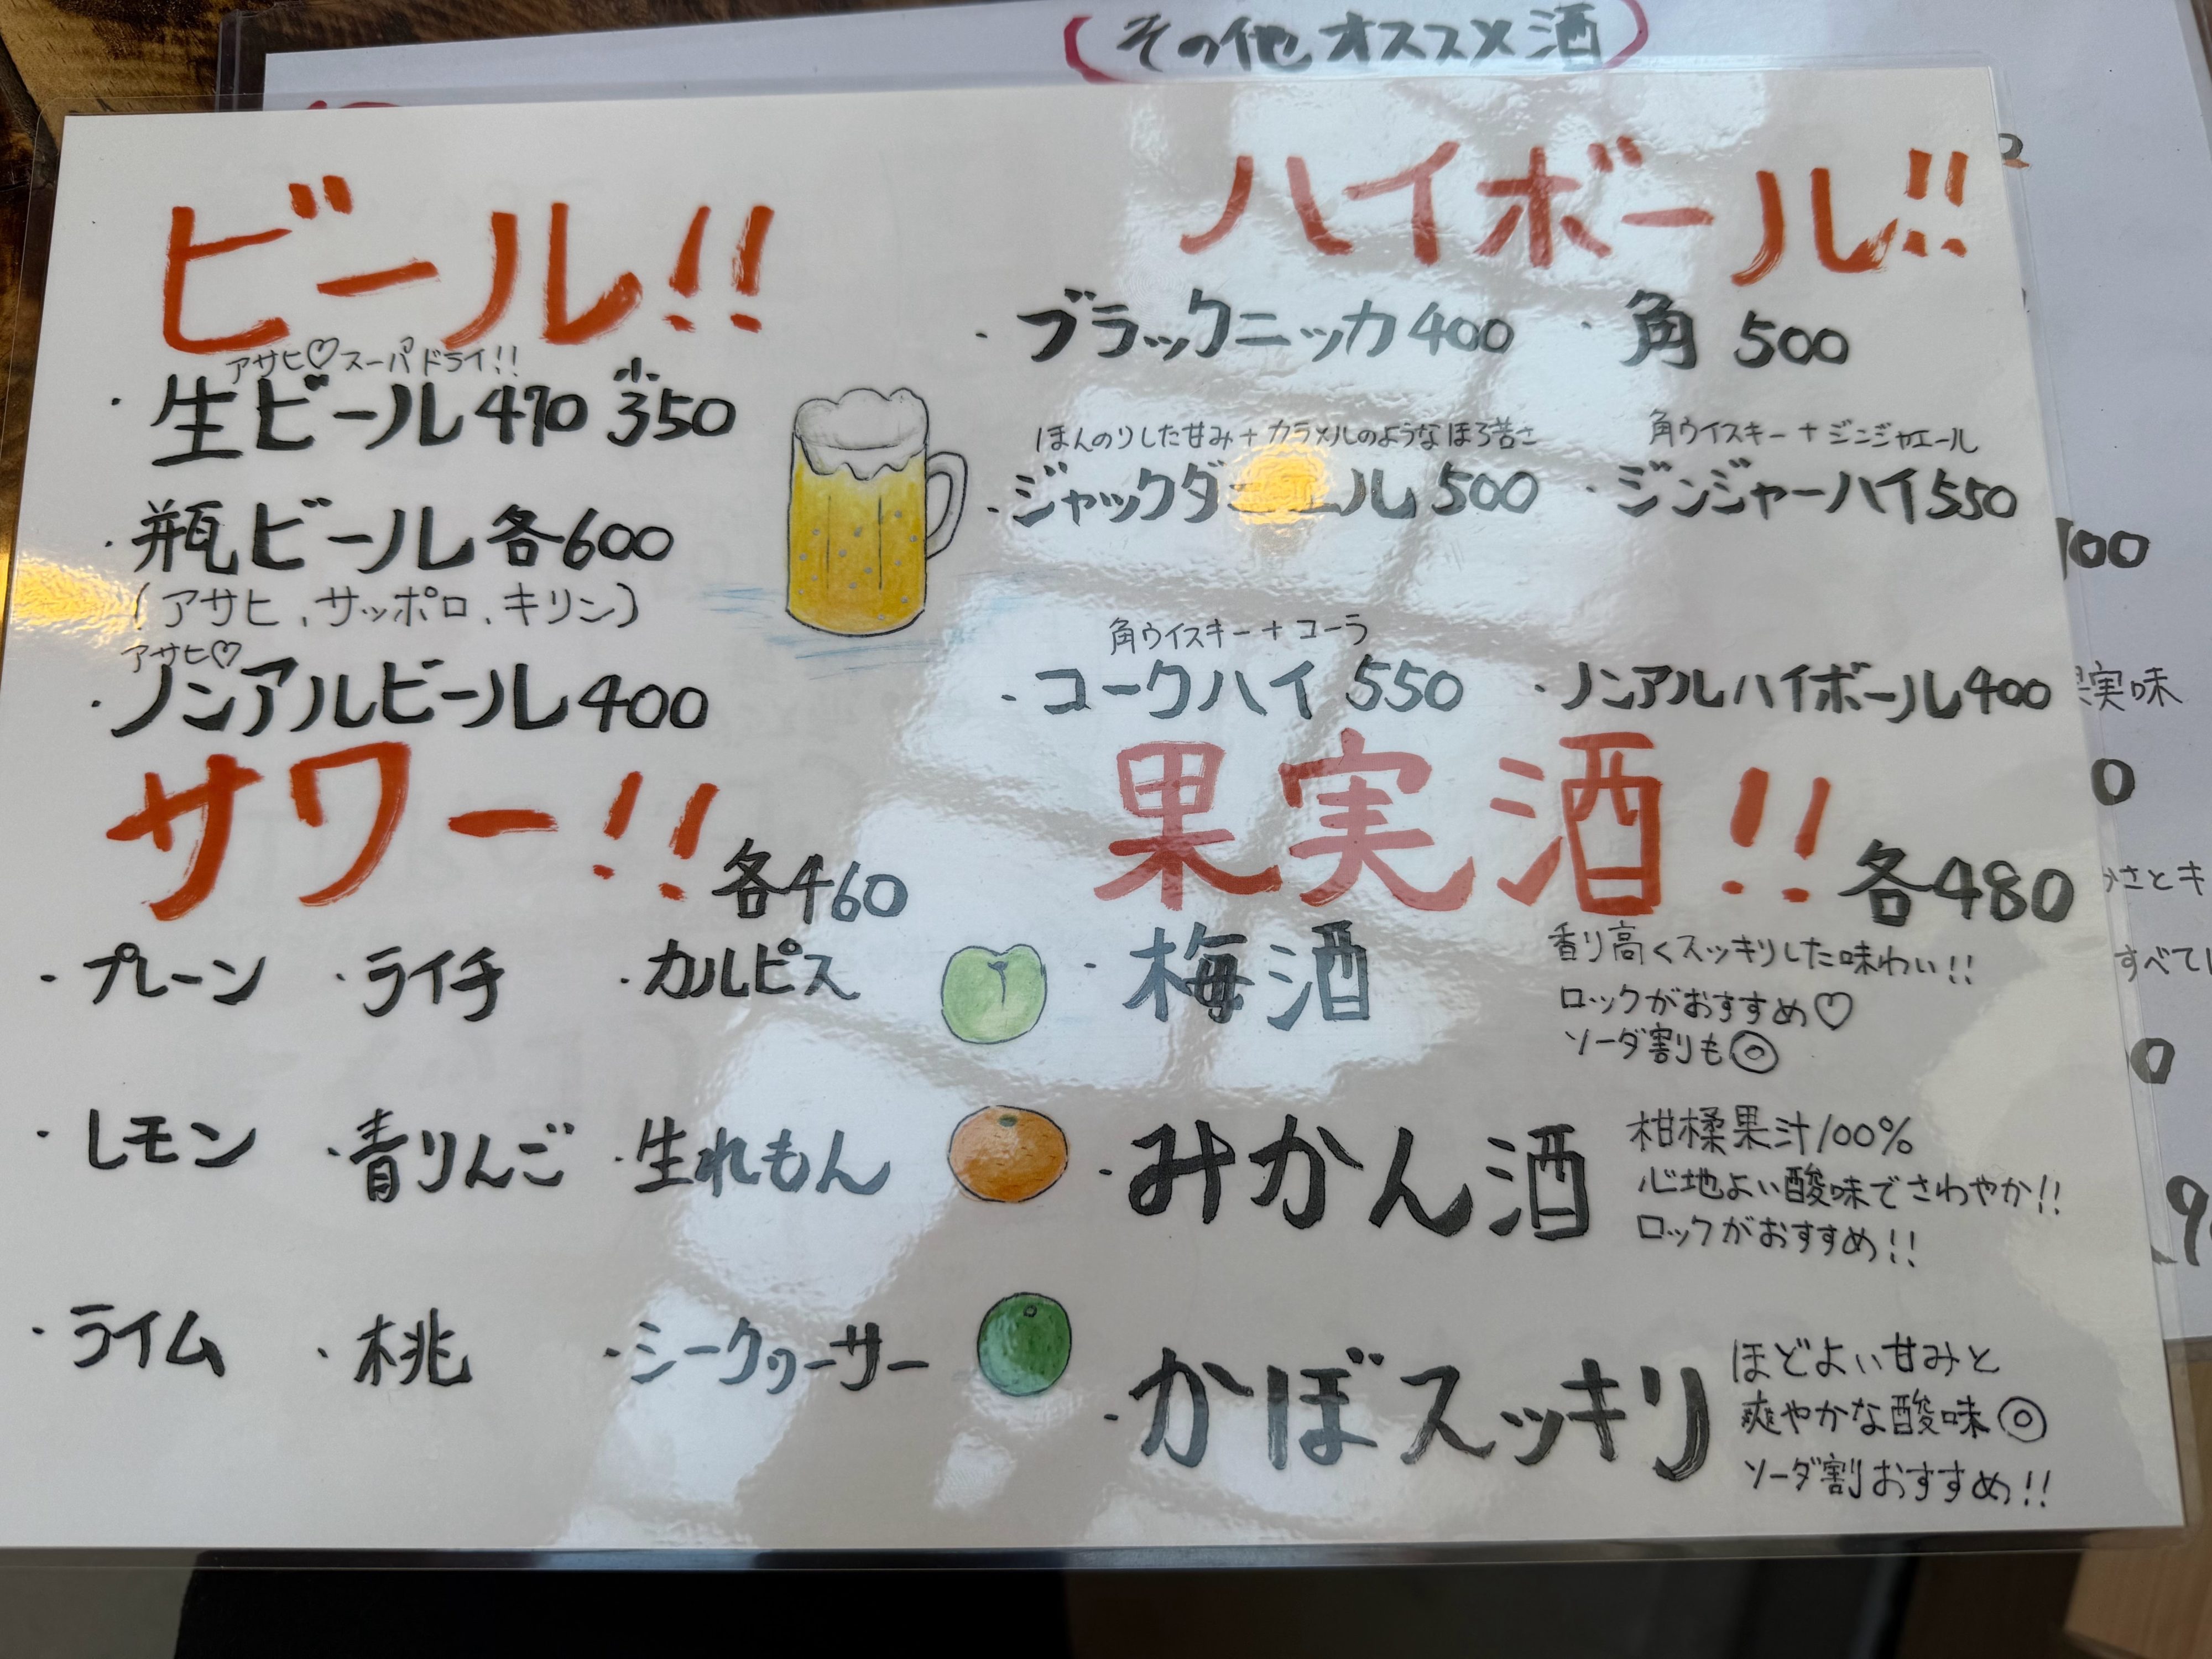 (その他オススメ酒)
ビール!!
アサヒ♡スーパードライ!!
・生ビール470 小350
・瓶ビール各600
(アサヒ、サッポロ、キリン)
アサヒ♡
・ノンアルビール400
ハイボール!!
・ブラックニッカ400 ・角 500
ほんのりした甘み+カラメルのようなほろ苦さ
・ジャックダニエル500
角ウイスキー+ジンジャエール
・ジンジャーハイ550
角ウイスキー+コーラ
・コークハイ 550 ・ノンアルハイボール400
サワー!! 各460
・プレーン ・ライチ ・カルピス
・レモン ・青りんご ・生れもん
・ライム ・桃 ・シークヮーサー
果実酒!! 各480
・梅酒
香り高くスッキリした味わい!!
ロックがおすすめ♡
ソーダ割りも◎
・みかん酒
柑橘果汁100%
心地よい酸味でさわやか!!
ロックがおすすめ!!
・かぼスッキリ
ほどよい甘みと
爽やかな酸味◎
ソーダ割おすすめ!!
00
実味
0
さとキ
すべて
0